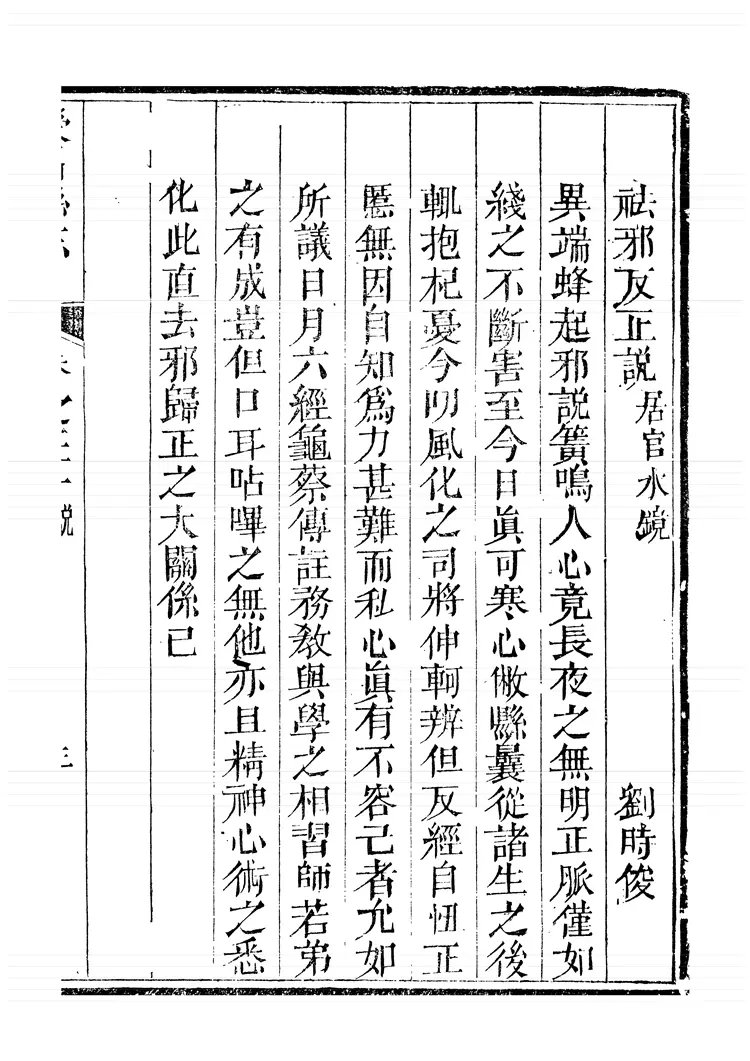 祛邪反正說 居官水鏡 劉時俊
異端蜂起邪說簧鳴人心竟長夜之無明正脈僅如
綫之不斷害至今日眞可寒心敝縣曩從諸生之後
輒抱杞憂今叨風化之司將伸軻辨但反經自忸正
慝無因自知爲力甚難而私心眞有不容己者允如
所議日月六經龜蔡傳註務敎與學之相習師若弟
之有成豈但口耳呫嗶之無他亦且精神心術之悉
化此直去邪歸正之大關係已
說
三